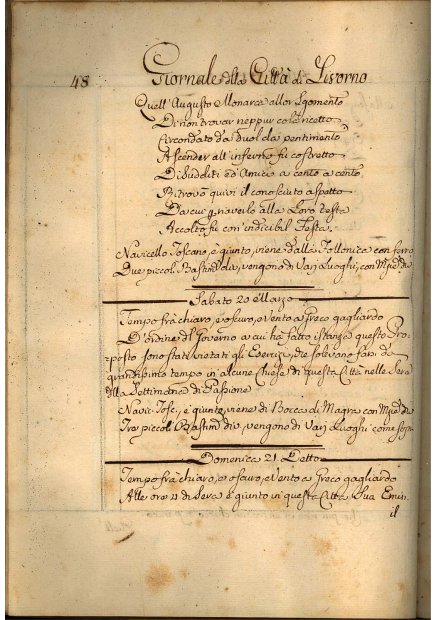 48 Giornale della Città di Livorno
Quell'Augusto Monarca allor sgomento
Di non trovar neppur colà ricetto
Circondato da duol da pentimento
Ascender all'inferno fù costretto
Di Sudditi ed Amici a cento a cento
Ritrovò quivi il conosciuto aspetto
Da cui gravarlo alla Loro testa
Accolto fù con indicibil festa.
Navicello Toscano, è giunto, viene dalla Follonica con ferro
Due piccoli Bastim.ti div., vengono di Varj Luoghi, con M di
Sabato 20 Marzo
Tempo frà chiaro, e oscuro, e Vento a Greco gagliardo
D'ordine del Governo a cui hà fatto istanza questo Pro=
posto sono stati vietati gli Esercizj, che solevano farsi da
grandissimo tempo in alcune Chiese di questa Città nelle Sere
della Settimana di Passione
Navic. Tosc., è giunto, viene di Bocca di Magra con M di
Tre piccoli Bastim.ti div., vengono di Varj Luoghi come sopra
Domenica 21. Detto
Tempo frà chiaro, e oscuro, e Vento a Greco gagliardo
Alle ore 11 di Sera è giunto in questa Città Sua Emin.
il